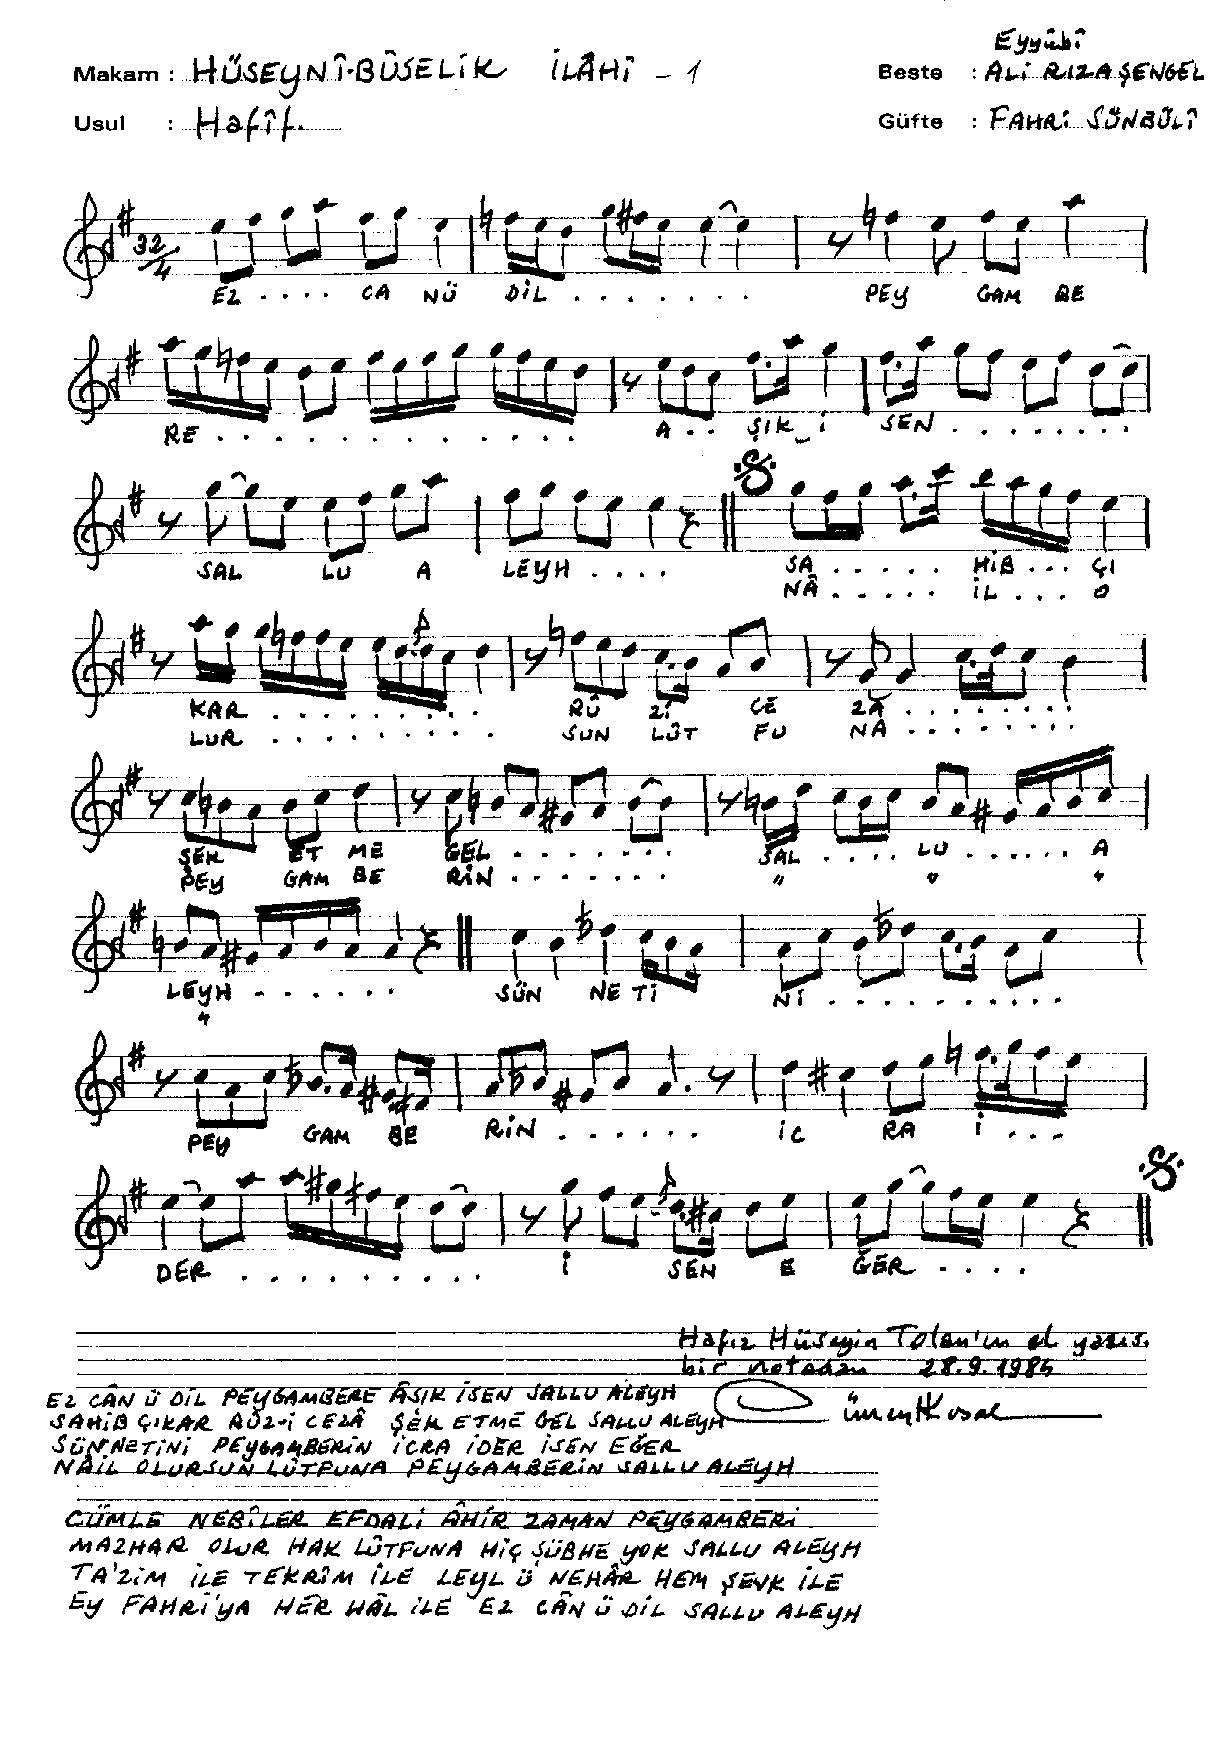 Eyyûbî
Makam : HÜSEYNÎ-BÛSELİK İLÂHÎ - 1 Beste : ALİ RIZA ŞENGEL
Usul : Hafîf. Güfte : FAHRİ SÜNBÜLÎ
32/4
EZ . . . . CA NÜ DİL . . . . . . . PEY GAM BE
RE . . . . . . . . . . . . . A . . ŞIK_İ SEN . . . . . . . .
SAL LU A LEYH . . . . SA . . . . . HİB . . . ÇI
NÂ . . . . . İL . . . O
KAR . . . . . . . . . RÛ Zİ CE ZÂ . . . . . . . .
LUR . . . . . . . . . SUN LÛT FU NA . . . . . . . .
ŞEK ET ME GEL . . . . . . . SAL . . . . LU . . . . . . A
PEY GAM BE RİN . . . . . . . " " "
LEYH . . . . . . SÜN NE Tİ Nİ . . . . . . . . . .
"
PEY GAM BE RİN . . . . . . İC RA İ . . .
DER . . . . . . . . . İ SEN E ĞER . . . .
Hafız Hüseyin Tolan'ın el yazısı
bir notadan 28.9.1985
EZ CÂN Ü DİL PEYGAMBERE ÂŞIK İSEN SALLU ALEYH
SAHİB ÇIKAR RÛZ-İ CEZÂ ŞEK ETME GEL SALLU ALEYH
SÜNNETİNİ PEYGAMBERİN İCRA İDER İSEN EĞER
NÂİL OLURSUN LÛTFUNA PEYGAMBERİN SALLU ALEYH
CÜMLE NEBÎLER EFDALİ ÂHİR ZAMAN PEYGAMBERİ
MAZHAR OLUR HAK LÛTFUNA HİÇ ŞÜBHE YOK SALLU ALEYH
TA'ZİM İLE TEKRÎM İLE LEYL Ü NEHÂR HEM ŞEVK İLE
EY FAHRİ'YA HER HÂL İLE EZ CÂN Ü DİL SALLU ALEYH